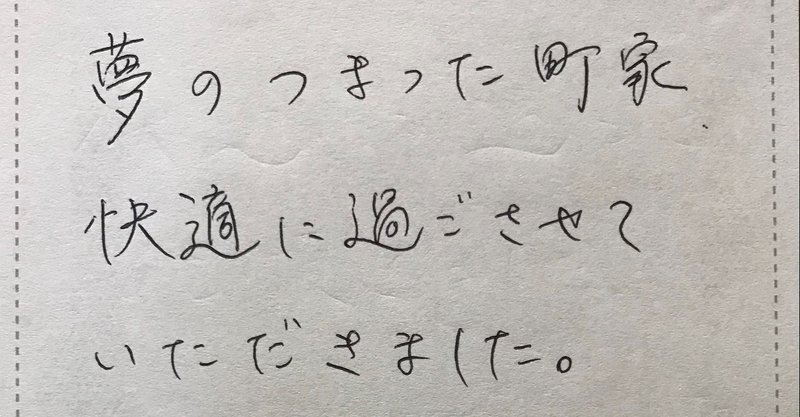 夢のつまった町家
快適に過ごさせて
いただきました。